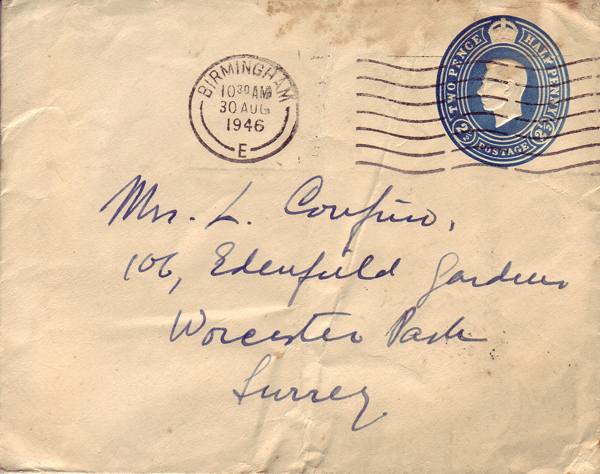 BIRMINGHAM
10 30 AM
30 AUG
1946
E
TWO PENCE HALFPENNY
2½ POSTAGE 2½
Mrs. L.
106, Edenfield Gardens
Worcester Park
Surrey